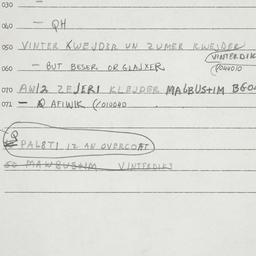 030 —
040 — QH
050 VINTER KWEJDER UN ZUMER KWEJDER
(VINTERDIK
060 — BUT BESER OR GLAJXER (040010
070 AWIZ ZEJERI KLEJDER MALBUSHIM BGO
071 — Q AFIWIK (010040
Q PALBTI IZ AN OVERCOAT
50 MAWBUSHIM VINTERDIKS